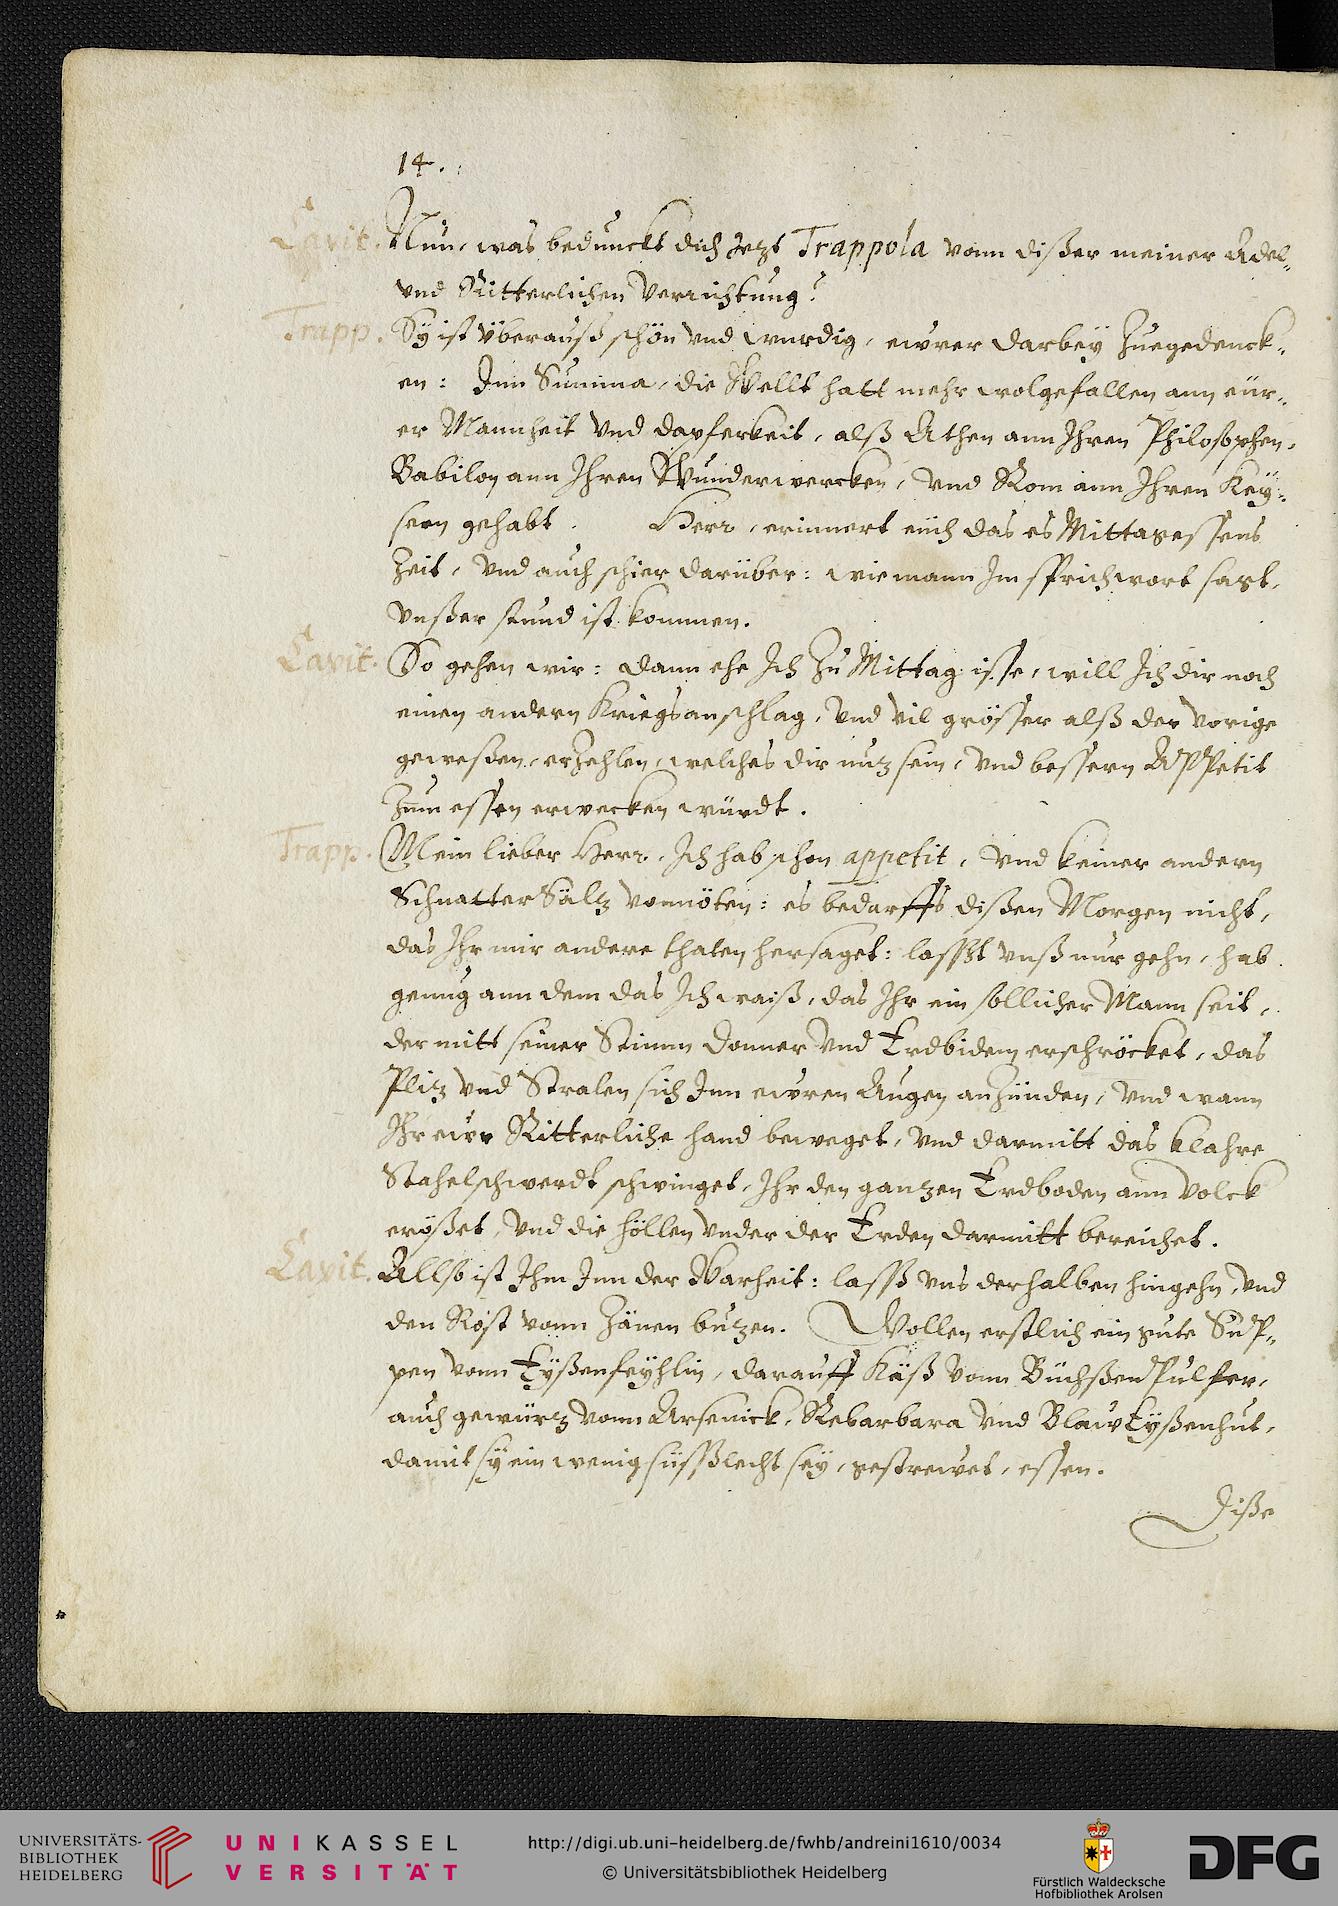 14.
Capit. Nun, was bedunckt dich Jezt Trappola vonn dißer meiner Adel-
vnd Ritterlichen verrichtung?
Trapp. Sÿ ist vberauß schön vnd wurdig, ewrer darbeÿ Zuegedenck-
en: Inn Summa, die Wellt hatt mehr wolgefallen ann eür-
er Mannheit vnd dapferkeit, alß Athen ann Ihren Philosophen,
Babilon ann Ihren Wunderwercken, vnd Rom ann Ihren Keÿ-
sern gehabt. Herr, erinnert eüch das es Mittagessens
Zeit, vnd auch schier darüber: wie mann Im sprichwort sagt,
vnßer stund ist kommen.
Capit. So gehen wir: dann ehe Ich Zu Mittag isse, will Ich dir noch
einen andern Kriegsanschlag, vnd vil grösser alß der vorige
geweßen, erzehlen, welches dir nuz sein, vnd bessern Appetit
Zum essen erwecken würdt.
Trapp. Mein lieber Herr, Ich hab schon appetit, vnd keiner andern
Schnatter Sälz vonnöten: es bedarffs dißen Morgen nicht,
das Ihr mir andere thaten hersaget: lasßt vnß nur gehn, hab
genug ann dem das Ich waiß, das Ihr ein sollicher Mann seit,
der mitt seiner Stimm Donner vnd Erdbidem erschröcket, das
Pliz vnd Stralen sich Inn ewren Augen anzünden, vnd wann
Ihr ewr Ritterliche hand beweget, vnd darmitt das klahre
Stahelschwerdt schwinget, Ihr den ganzen Erdboden ann volck
erößet, vnd die höllen vnder der Erden darmitt bereichet.
Capit. Allso ist Ihm Inn der Warheit: lasß vns derhalben hingehn, vnd
den Rost vonn Zänen buzen. Wollen erstlich ein gute Sup-
pen vonn Eÿßenfeÿhlin, darauff Käß vonn Büchßen Pulfer,
auch gewürz vonn Arsenick, Rebarbara vnd Blaw Eÿßenhut,
damit sÿ ein wenig süsßlecht seÿ, gestrewet, essen.
Diße
UNIVERSITÄTS-
BIBLIOTHEK
HEIDELBERG
UNIKASSEL
VERSITÄT
http://digi.ub.uni-heidelberg.de/fwhb/andreini1610/0034
© Universitätsbibliothek Heidelberg
Fürstlich Waldecksche
Hofbibliothek Arolsen
DFG